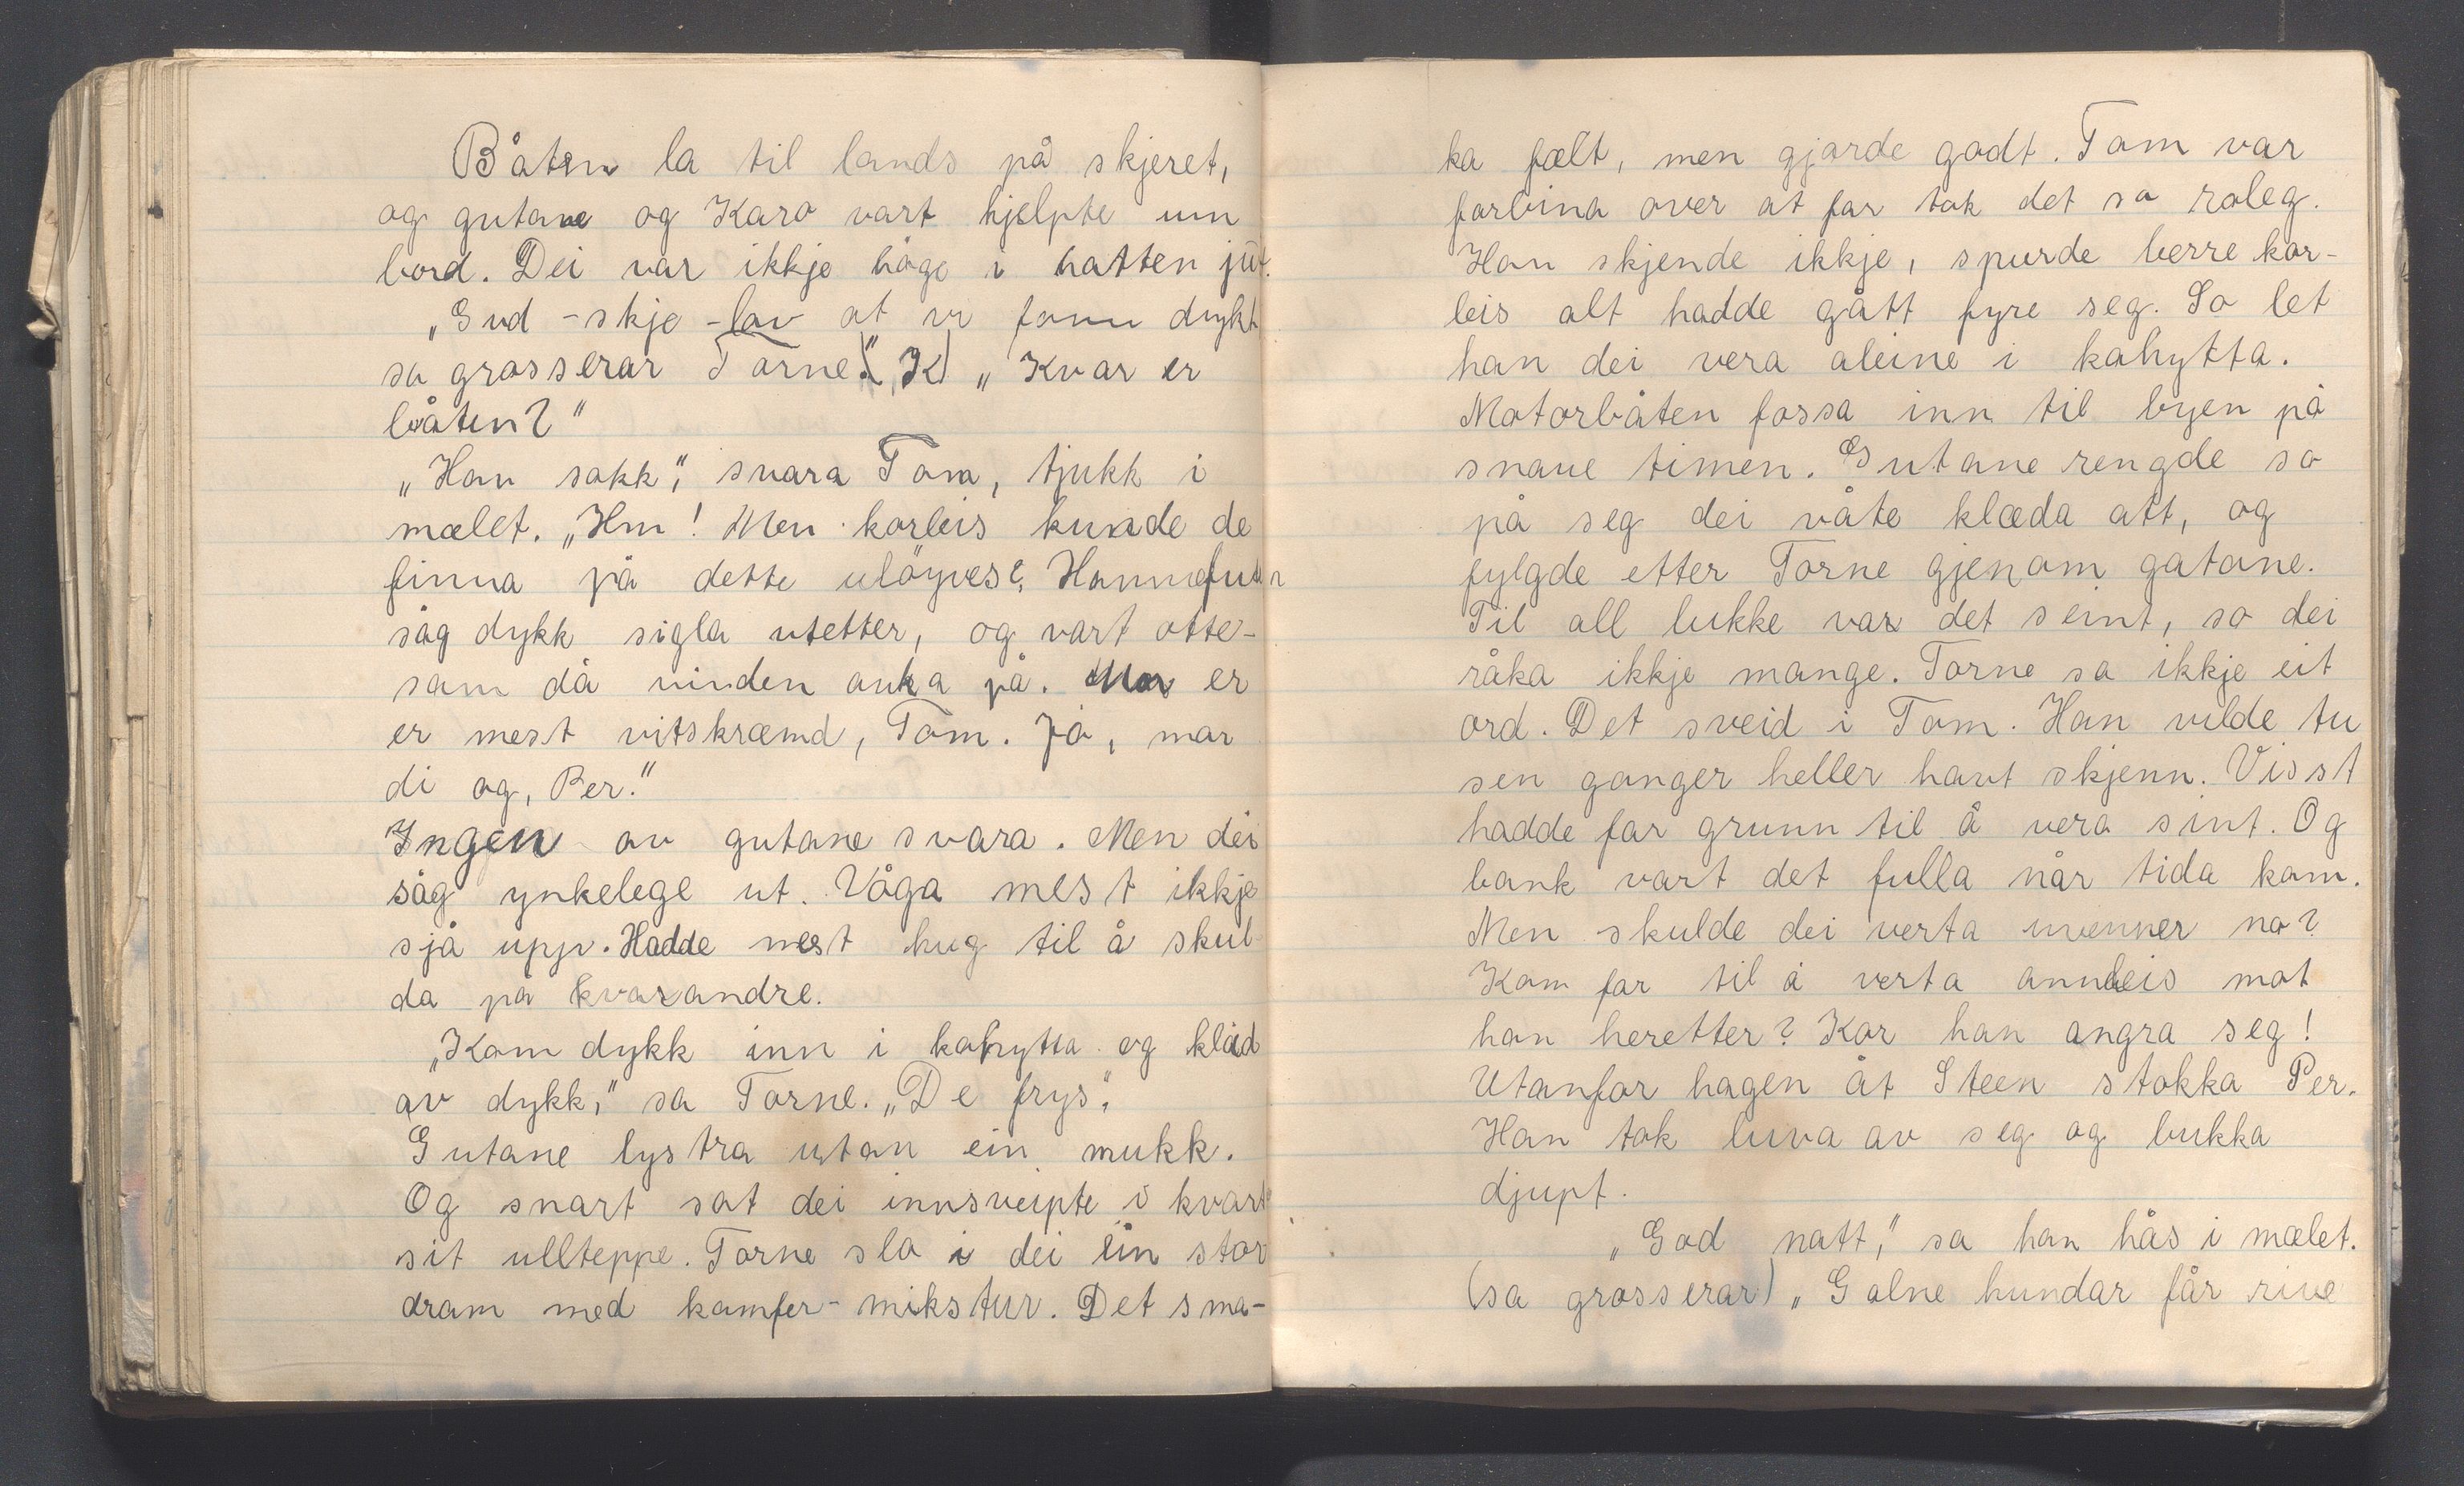 Båten la til lands på skjeret,
og gutane og Karo vart hjelpte um
bord. Dei var ikkje høge i hatten just.
„Gud-skje-lov at vi fann dykk
sa grosserar Torne." K) „Kvar er
båten?"
„Han sokk", svara Tom, tjukk i
mælet. „Hm! Men korleis kunde de
finna på dette uløyves? Hamnefuten
såg dykk sigla utetter, og vart otte-
sam då vinden auka på. Mor er
er mest vitskræmd, Tom. Ja, mor
di og, Per."
Ingen av gutane svara. Men dei
såg ynkelege ut. Våga mest ikkje
sjå upp. Hadde mest hug til å skul
da på kvarandre.
„Kom dykk inn i kahytta og klæd
av dykk," sa Torne. „De frys".
Gutane lystra utan ein mukk.
Og snart sat dei innsveipte i kvart
sit ullteppe. Torne slo i dei ein stor
dram med kamfer-mikstur. Det sma-
ka fælt, men gjorde godt. Tom var
forbina over at far tok det so roleg.
Han skjende ikkje, spurde berre kor-
leis alt hadde gått fyre seg. So let
han dei vera aleine i kahytta.
Motorbåten fossa inn til byen på
snaue timen. Gutane rengde so
på seg dei våte klæda att, og
fylgde etter Torne gjenom gatane.
Til all lukke var det seint, so dei
råka ikkje mange. Torne sa ikkje eit
ord. Det sveid i Tom. Han vilde tu
sen ganger heller havt skjenn. Visst
hadde far grunn til å vera sint. Og
bank vart det fulla når tida kom.
Men skulde dei verta uvenner no?
Kom far til å verta annleis mot
han heretter? Kor han angra seg!
Utanfor hagen åt Steen stokka Per.
Han tok luva av seg og bukka
djupt.
„God natt," sa han hås i mælet.
(sa grosserar) „Galne hundar får rive